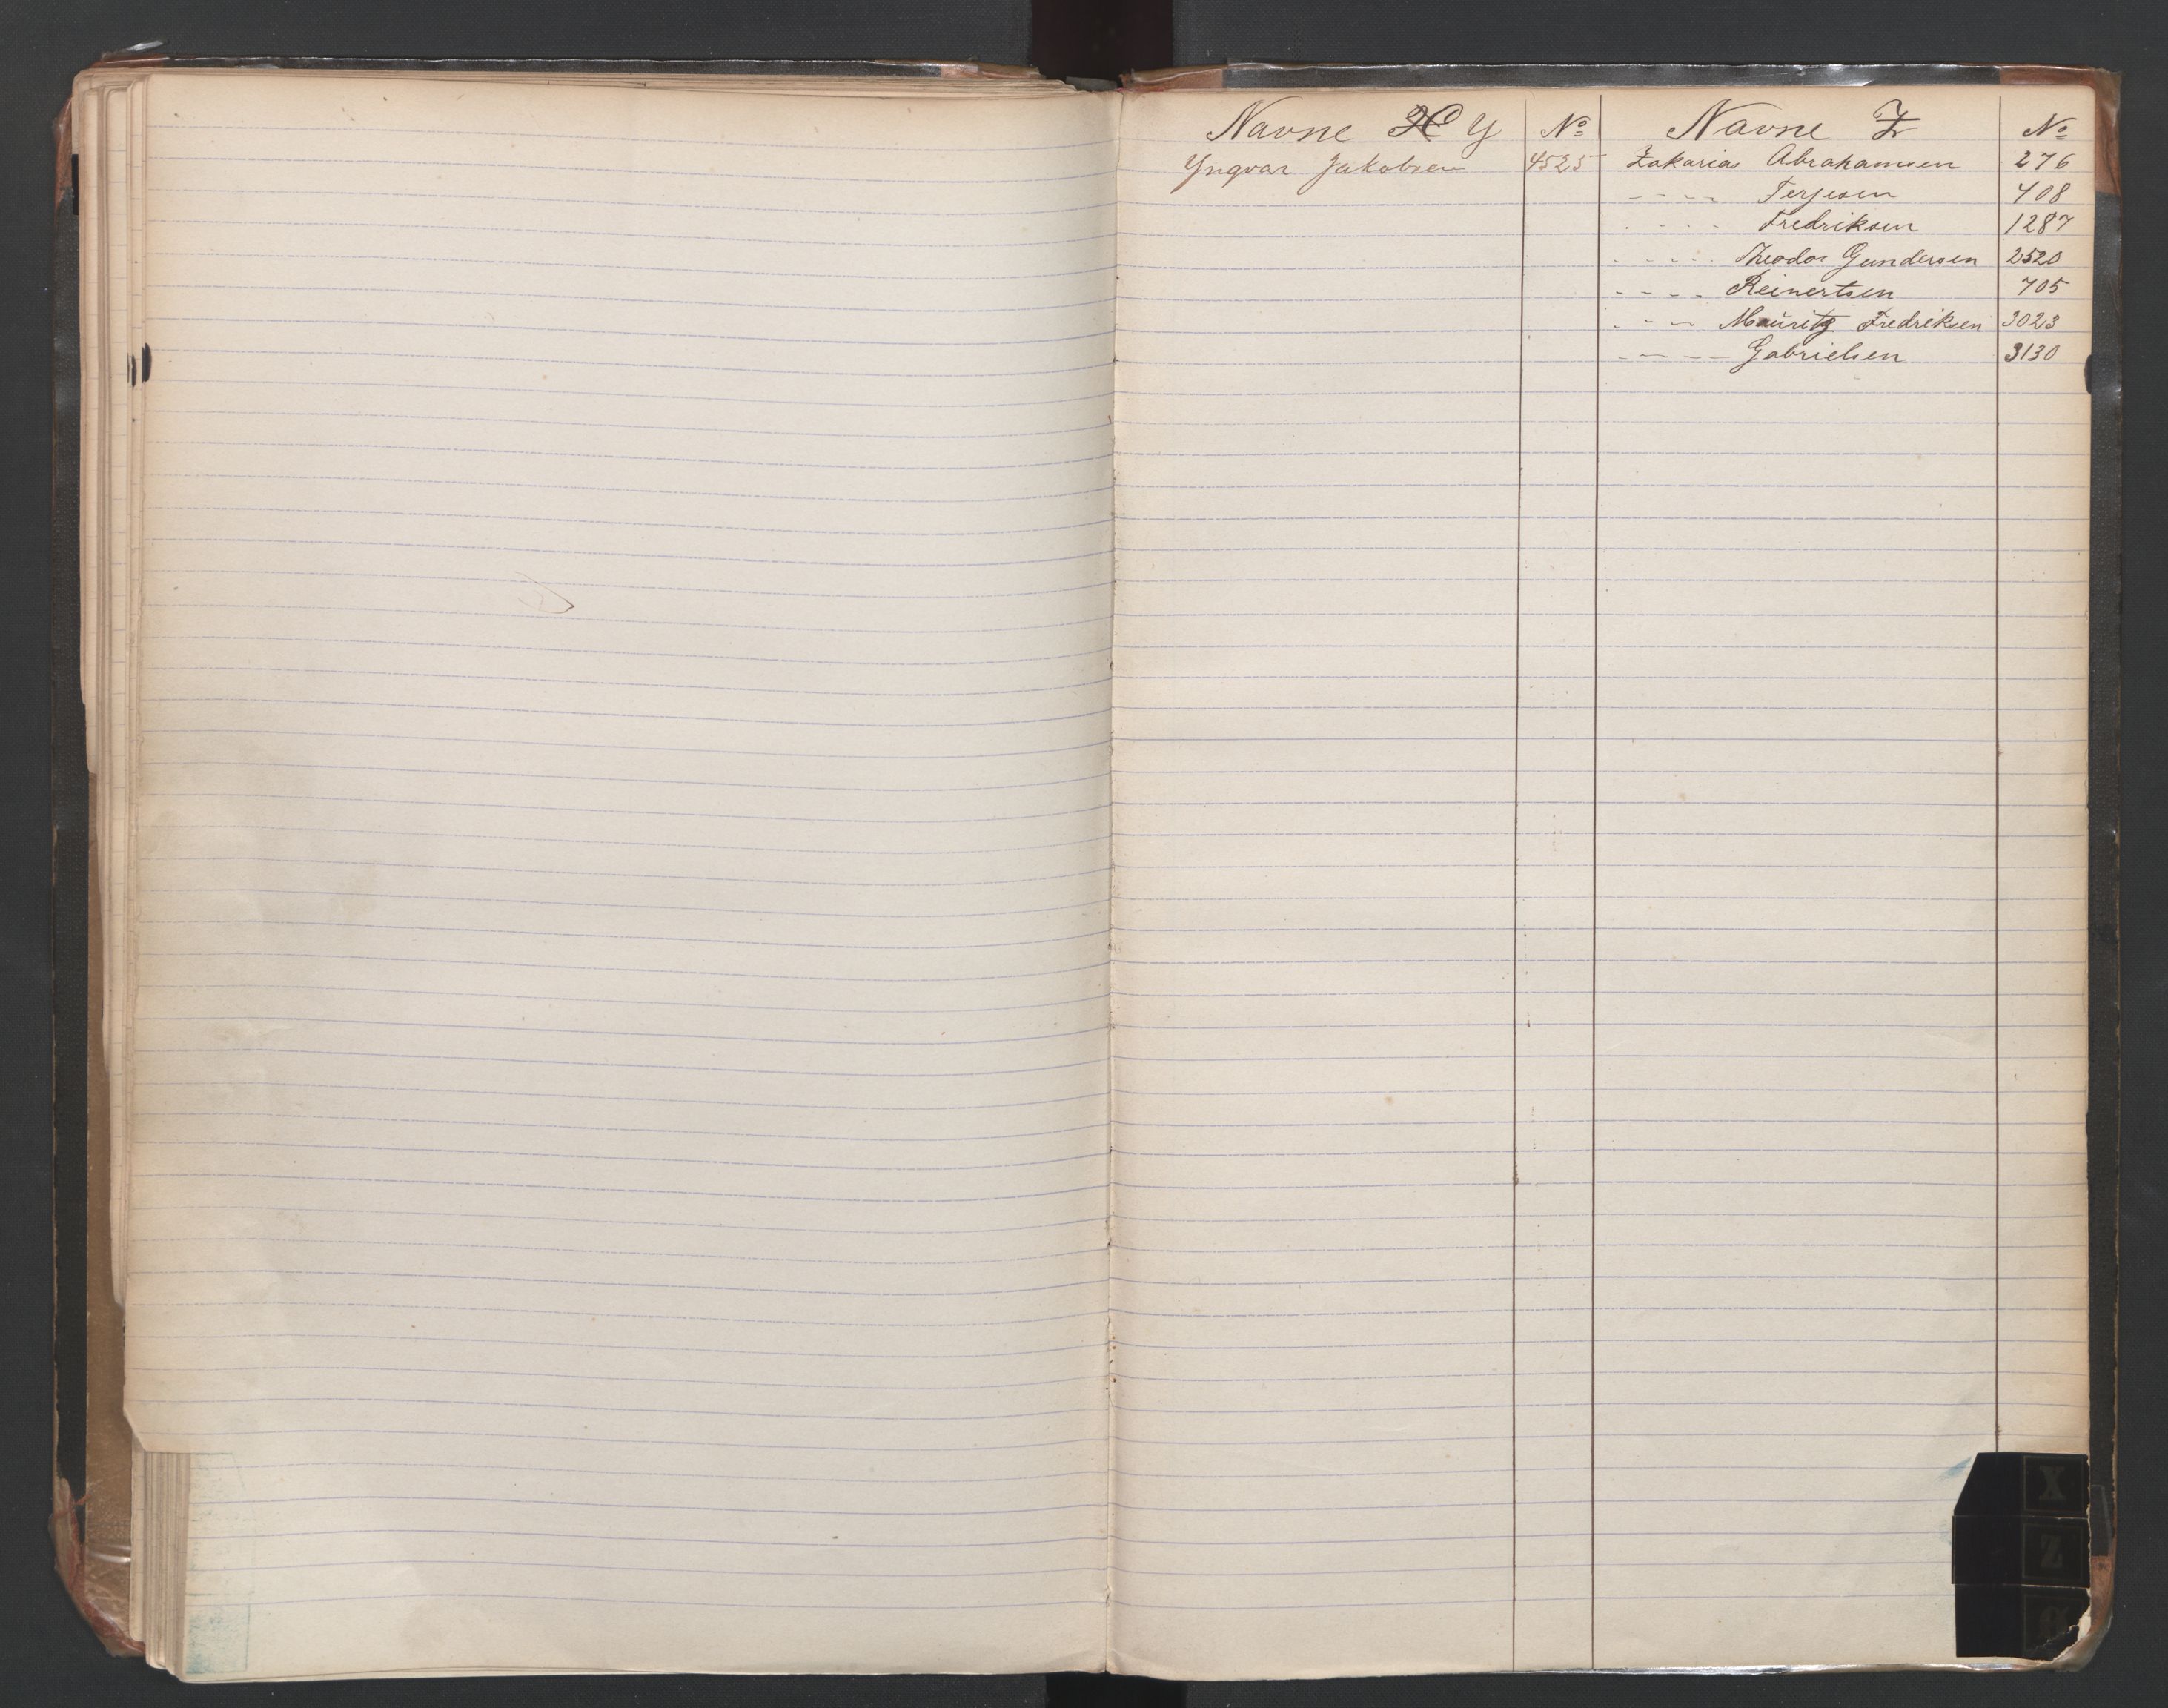 Navne X Y № Navne Z №
Yngvar Jakobsen 4525 Zakarias Abrahamsen 276
- - - - Terjesen 408
- - - - Fredriksen 1287
- - - - - Theodor Gundersen 2520
- - - - Reinertsen 705
- - - Mauritz Fredriksen 3023
- - - - Gabrielsen 3130
X
Z
Ø